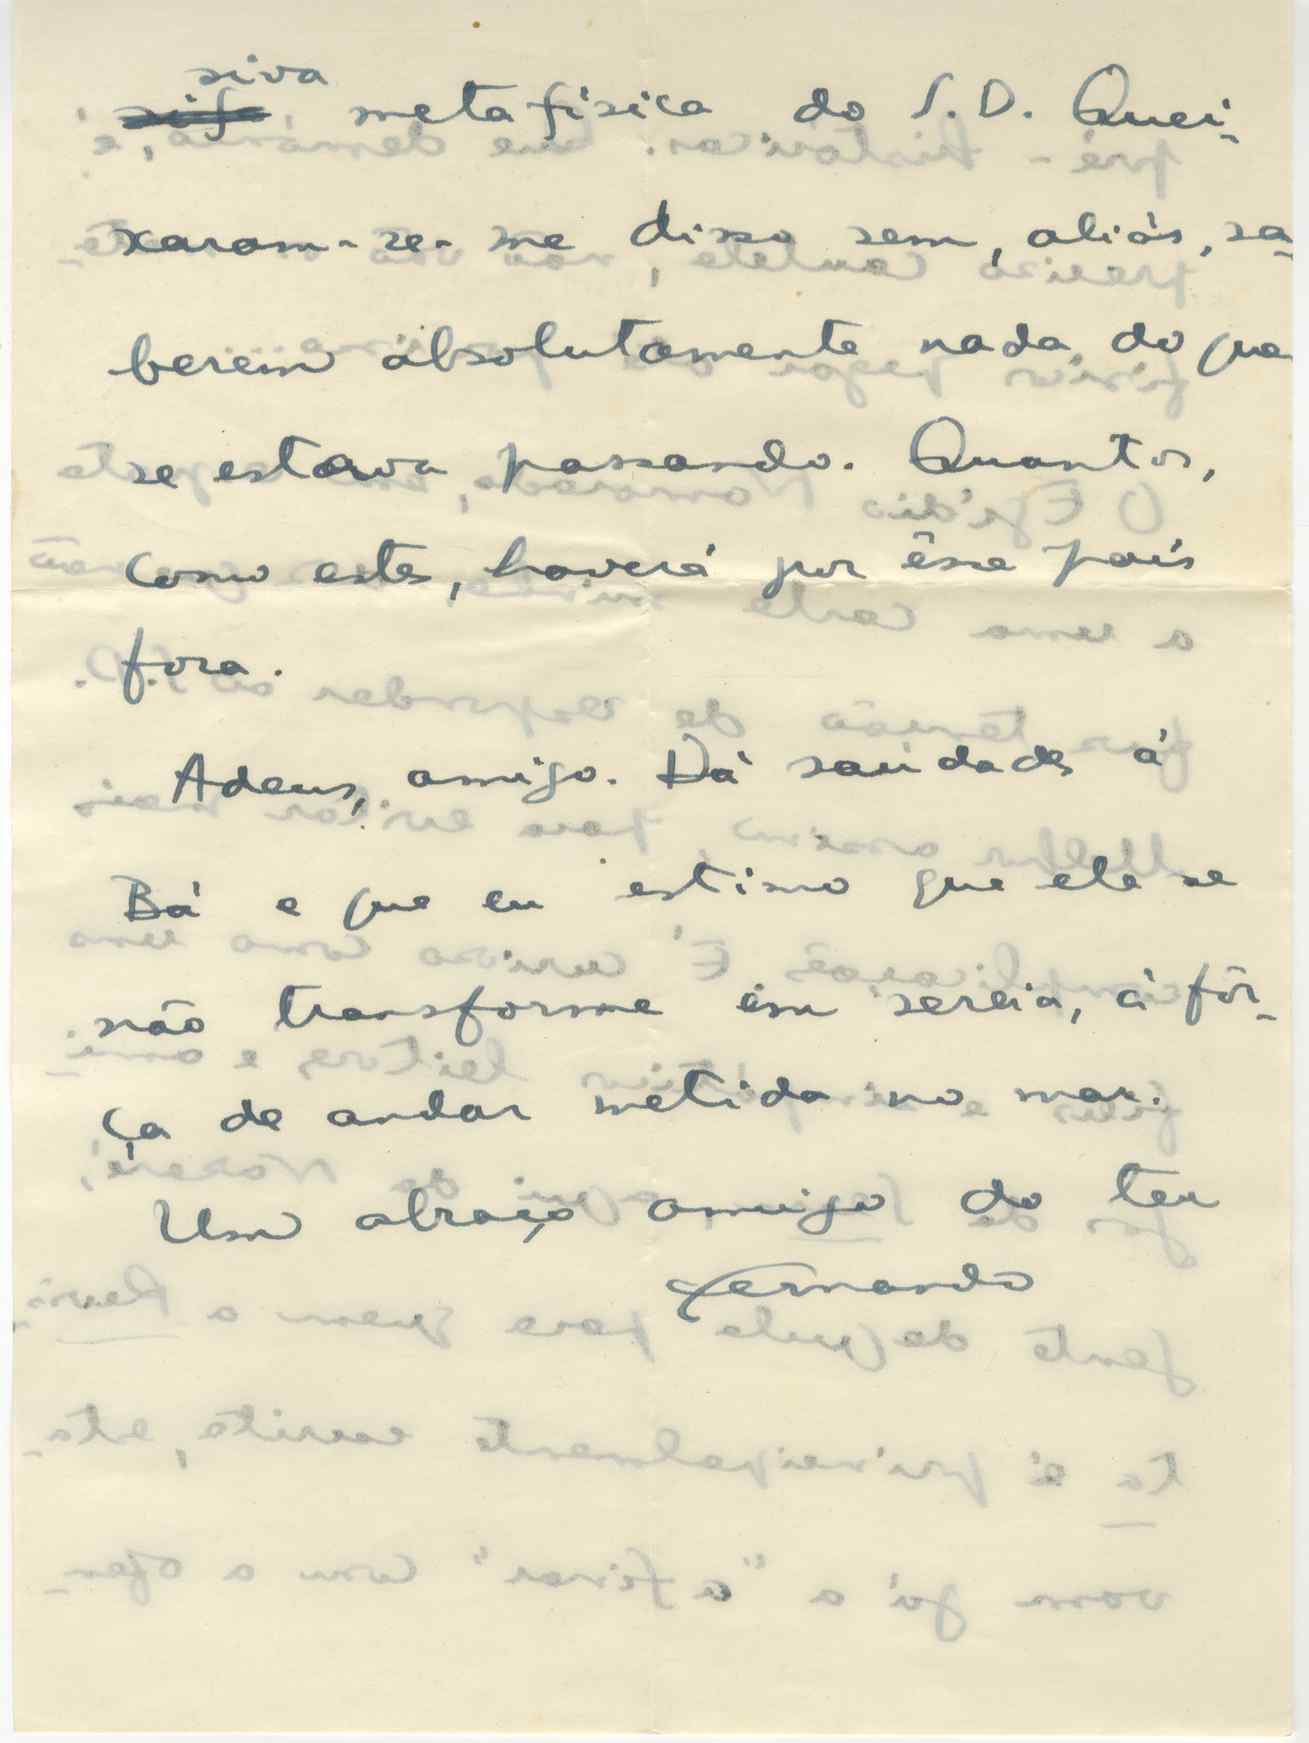 siva
metafísica do S.D. Quei-
xaram-se-me disso sem, aliás, sa-
berem absolutamente nada do que
se estava passando. Quantos,
como estes, haverá por êsse país
fora.
Adeus, amigo. Dá saudades á
Bá e que eu estimo que ela se
não transforme em sereia, á fôr-
ça de andar metida no mar.
Um abraço amigo do teu
Fernando